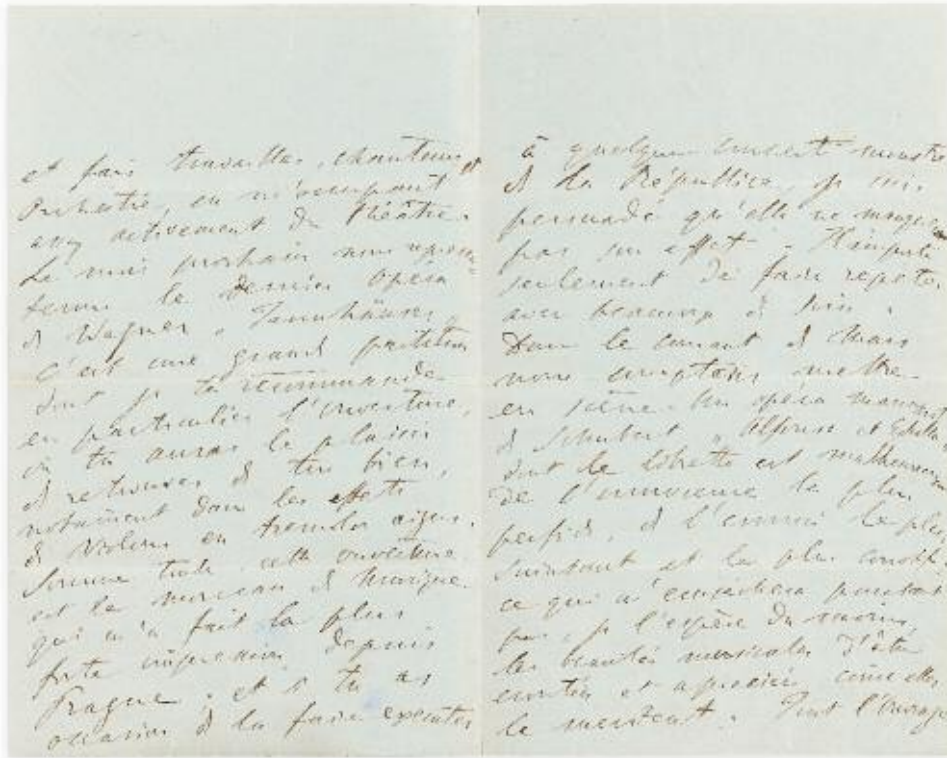 et fais travailler chanteurs et
Orchestre, en m'occupant
assez activement du théâtre.
Le mois prochain nous représen-
terons le dernier Opéra
de Wagner, Tannhäuser,
c'est une grande partition
dont je te recommande
en particulier l'ouverture,
où tu auras le plaisir
de retrouver de ton bien,
notament dans les effets
de violons en tremolos aigus.
Somme toute cette ouverture
est le morceau de musique
qui m'a fait la plus
forte impression depuis
Prague; et si tu as
occasion de la faire exécuter
à quelque concert monstre
de la République, je suis
persuadé qu'elle ne manquera
pas son effet. Il
seulement de faire repeter
avec beaucoup de soin.
Dans le courant de Mars
nous comptons mettre
en scène un opéra manuscrit
de Schubert, Alfonso et Estrella
dont le libretto est malheureusement
de l'innocence la plus
perfide, de l'ennui le plus
et le plus
ce qui n'empêchera pourtant
pas, je l'espère du moins,
les beautés musicales d'être
senties et appréciées comme elles
le méritent. Tout l'ouvrage